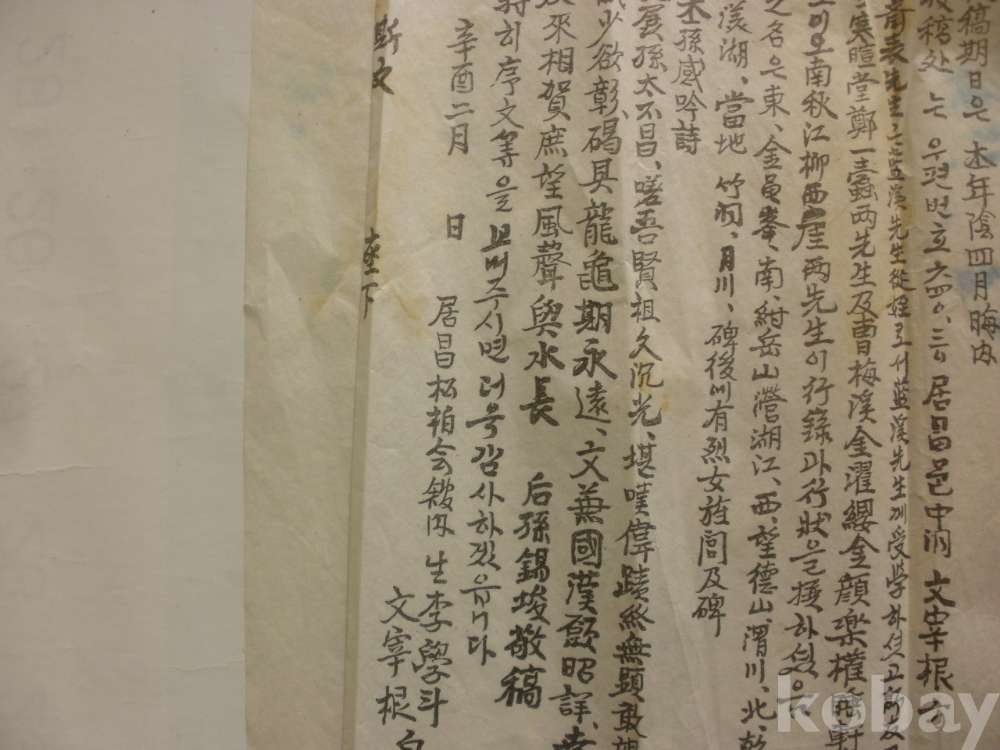 稿期日은 本年陰四月晦內
稿処는 우편번호六四〇.三〇 居昌邑中洞 文宰根
表先生 藍溪先生從姪로서 藍溪先生게 受學하셧고
寒暄堂鄭一蠹两先生及曺梅溪金濯纓金顔樂權睡軒
南秋江柳西崖两先生이 行錄과 行狀을 撰하셧음
名은 東、金 峯、南、紺岳山瀯湖江、西、望德山渭川、北、
漾湖、當地 竹洞、月川、碑後에 有烈女旌閭及碑
本孫感吟詩
孱孫太不昌、嗟吾賢祖久沉光、堪嘆偉蹟終無顯敢
少欲彰碣具龍龜期永遠、文兼國漢顯昭詳、
來相賀庶望風聲與水長 后孫錫埈敬稿
特히 序文等을 보내주시면 더욱 감사하겠읍니다
辛酉二月 日 居昌松柏会舘內 生李學斗
文宰根
斯文 座下
kobay